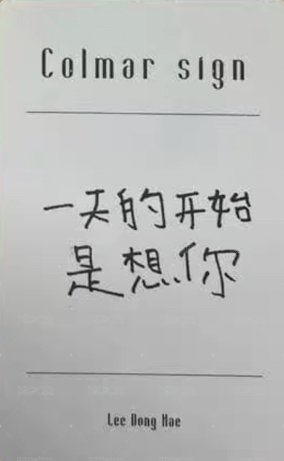 Colmar sign
一天的开始
是想你
Lee Dong Hae